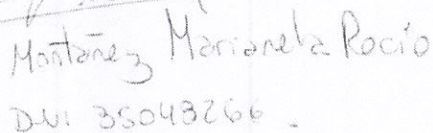 Montañez Marianela Rocío
DNI 35043266.